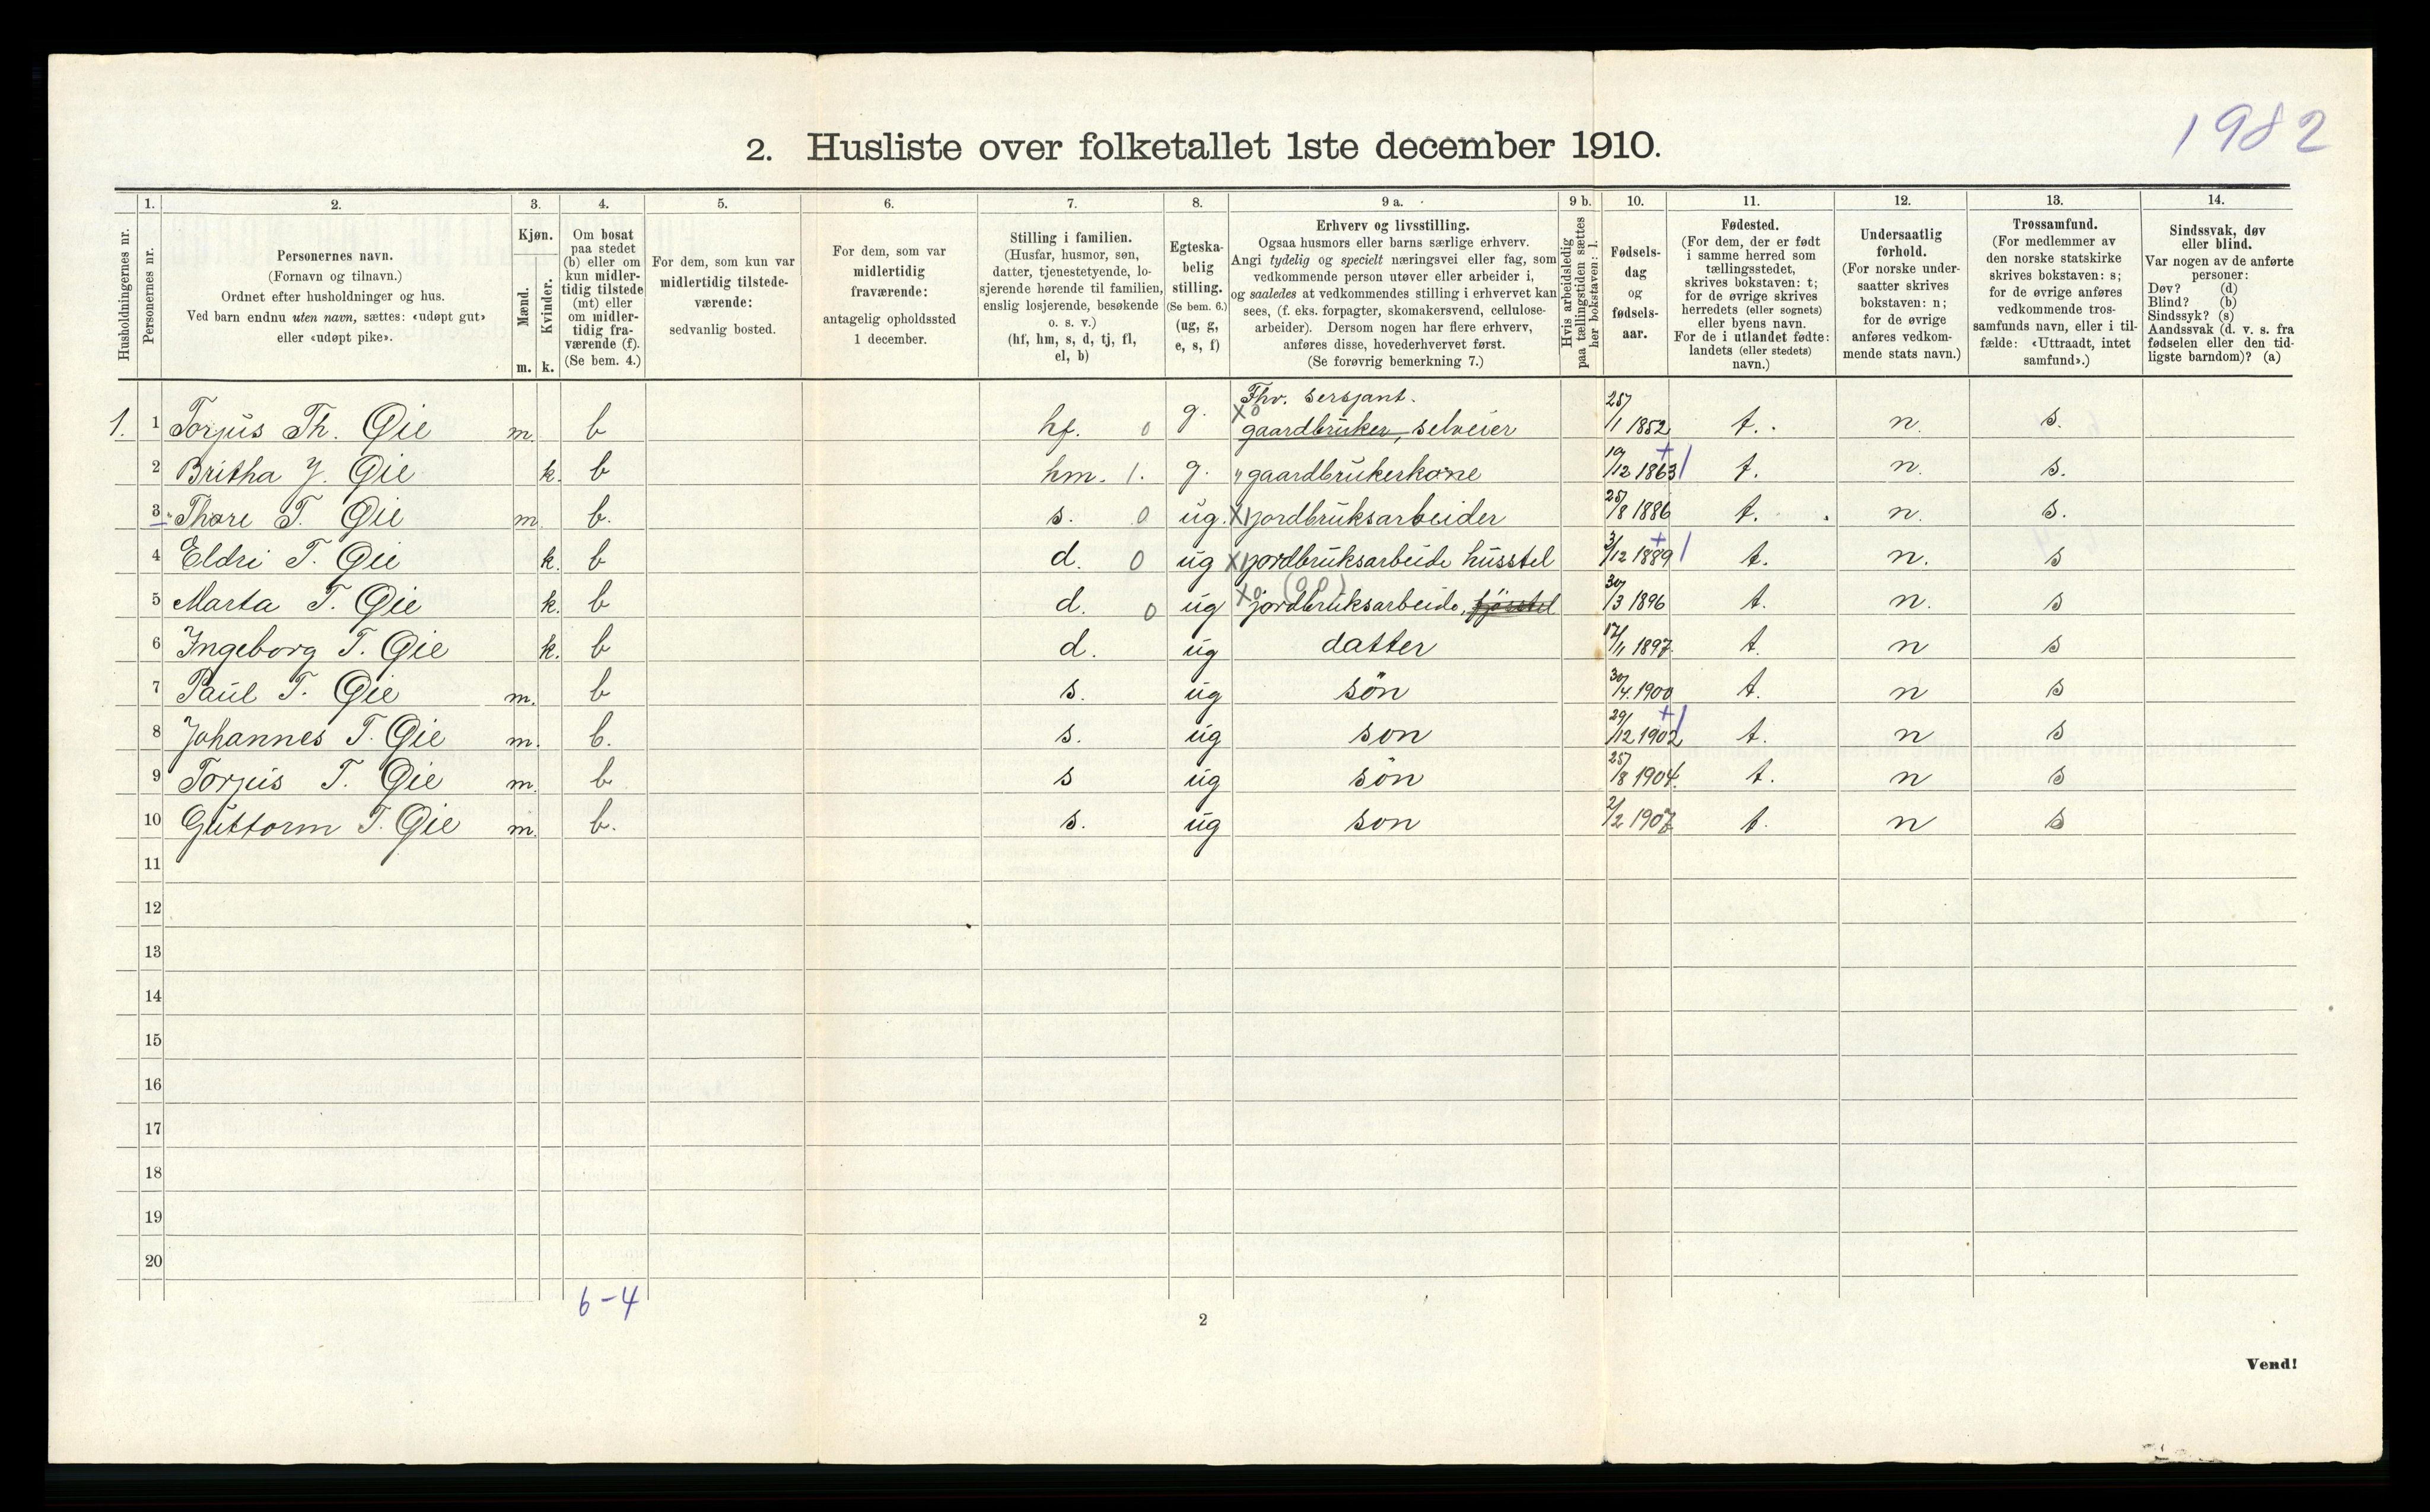 1982
2. Husliste over folketallet 1ste december 1910.
Husholdningernes nr.
1.
Personernes nr.
2.
Personernes navn.
(Fornavn og tilnavn.)
Ordnet efter husholdninger og hus.
Ved barn endnu uten navn, sættes: «udøpt gut»
eller «udøpt pike».
3.
Kjøn.
Mænd.
Kvinder.
m. k.
4.
Om bosat
paa stedet
(b) eller om
kun midler-
tidig tilstede
(mt) eller
om midler-
tidig fra-
værende (f).
(Se bem. 4.)
5.
For dem, som kun var
midlertidig tilstede-
værende:
sedvanlig bosted.
6.
For dem, som var
midlertidig
fraværende:
antagelig opholdssted
1 december.
7.
Stilling i familien.
(Husfar, husmor, søn,
datter, tjenestetyende, lo-
sjerende hørende til familien,
enslig losjerende, besøkende
o. s. v.)
(hf, hm, s, d, tj, fl,
el, b)
8.
Egteska-
belig
stilling.
(Se bem. 6.)
(ug, g,
e, s, f)
9 a.
Erhverv og livsstilling.
Ogsaa husmors eller barns særlige erhverv.
Angi tydelig og specielt næringsvei eller fag, som
vedkommende person utøver eller arbeider i,
og saaledes at vedkommendes stilling i erhvervet kan
sees, (f. eks. forpagter, skomakersvend, cellulose-
arbeider). Dersom nogen har flere erhverv,
anføres disse, hovederhvervet først.
(Se forøvrig bemerkning 7.)
9 b.
Hvis arbeidsledig
paa tællingstiden sættes
her bokstaven: l.
10.
Fødsels-
dag
og
fødsels-
aar.
11.
Fødested.
(For dem, der er født
i samme herred som
tællingsstedet,
skrives bokstaven: t;
for de øvrige skrives
herredets (eller sognets)
eller byens navn.
For de i utlandet fødte:
landets (eller stedets)
navn.)
12.
Undersaatlig
forhold.
(For norske under-
saatter skrives
bokstaven: n;
for de øvrige
anføres vedkom-
mende stats navn.)
13.
Trossamfund.
(For medlemmer av
den norske statskirke
skrives bokstaven: s;
for de øvrige anføres
vedkommende tros-
samfunds navn, eller i til-
fælde: «Uttraadt, intet
samfund».)
14.
Sindssvak, døv
eller blind.
Var nogen av de anførte
personer:
Døv? (d)
Blind? (b)
Sindssyk? (s)
Aandssvak (d. v. s. fra
fødselen eller den tid-
ligste barndom)? (a)
Fhv. sersjant.
1. 1 Torjus Th. Øie m. b hf. 0 g. X0 gaardbruker, selveier 25/1 1852 t. n. s.
2 Britha J. Øie k. b hm. 1. g. " gaardbrukerkone 19/12 1863 t. n. s.
3 Thore T. Øie m b. s. 0 ug. X1 jordbruksarbeider 25/8 1886 t. n. s.
4 Eldri T. Øie k. b d. 0 ug X1 jordbruksarbeide husstel 3/12 1889 t. n. s
5 Marta T. Øie k. b d. 0 ug X0 jordbruksarbeide, fjøsstel 30/3 1896 t. n. s
6 Ingeborg T. Øie k. b d. ug datter 17/11 1897 t. n s
7 Paul T. Øie m. b s. ug søn 30/4. 1900 t. n s
8 Johannes T. Øie m. b. s. ug son 29/12 1902 t. n s
9 Torjus T. Øie m. b s ug søn 25/8 1904. t. n s
10 Guttorm T. Øie m. b. s. ug son 2/2 1907 t. n s
11
12
13
14
15
16
17
18
19
20
6-4
2
Vend!